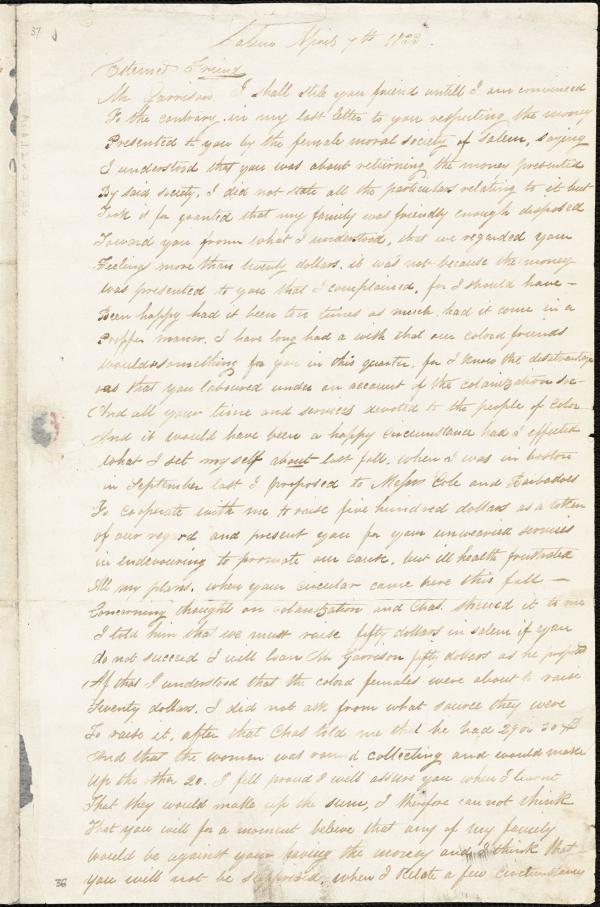 37
Salem April 7th 1833.
Esteemed Friend
Mr Garrison. I shall stile you friend untill I am convinced
To the contrary, in my last letter to you respecting the money
Presented to you by the female moral society of Salem, saying
I understood that you was about returning the money presented
By said society, I did not state all the particulars relating to it but
Took it for granted that my family was friendly enough disposed
Toward you from what I understood, that we regarded your
Feelings more than twenty dollars. it was not because the money
Was presented to you that I complained, for I should have —
Been happy had it been ten times as much had it come in a
Propper manor, I have long had a wish that our colord friends
Would do something for you in this quarter, for I knew the disadvantage
that you laboured under on account of the colanization soc-
And all your time and services devoted to the people of color
And it would have been a happy circumstance had I effected
What I set my self about last fall. when I was in boston
in September last I proposed to Messrs Cole and Barbadoes
To cooperate with me to raise five hundred dollars as a token
of our regard and present you for your unwearied services
in endeavouring to promote our cause, but ill health frustrated
All my plans, when your circular came here this fall —
Concerning thoughts on colanization and Chas. shewed it to me
I told him that we must raise fifty dollars in salem if you
do not succeed I will loan Mr Garrison fifty dollars as he propos'd
After that I understood that the colord females were about to raise
Twenty dollars. I did not ask from what source they were
To raise it, after that Chas told me that he had 29 or 30 $
And that the women was round collecting and would make
Up the other 20. I felt proud I will assure you when I learnt
That they would make up the sum, I therefore can not think
That you will for a moment believe that any of my family
would be against your having the money and I think that
you will not be surprised, when I relate a few circumstances
36